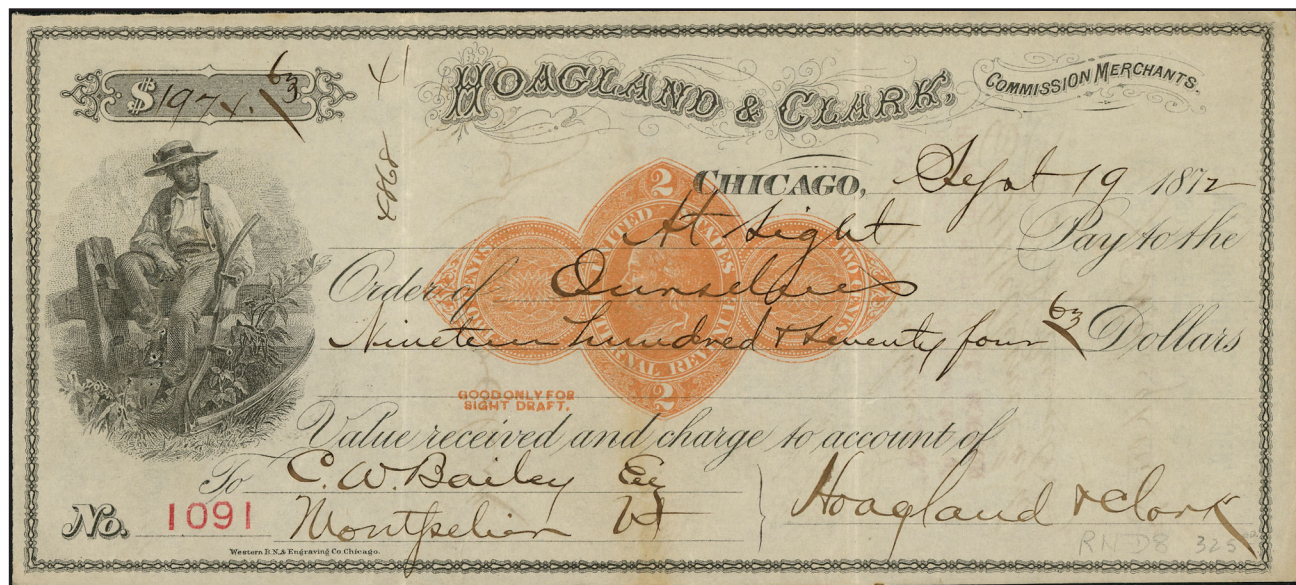 $1974.63
41
4868
HOAGLAND & CLARK, COMMISSION MERCHANTS.
CHICAGO, Sept 19 1872
At Sight Pay to the
Order of Ourselves
Nineteen hundred & seventy four 63 Dollars
2
UNITED STATES
INTERNAL REVENUE
TWO CENTS
2
GOOD ONLY FOR
SIGHT DRAFT.
Value received and charge to account of
To C. W. Bailey Esq
Montpelier Vt
Hoagland & Clark
No. 1091
Western B.N.& Engraving Co. Chicago.
RN D8 325